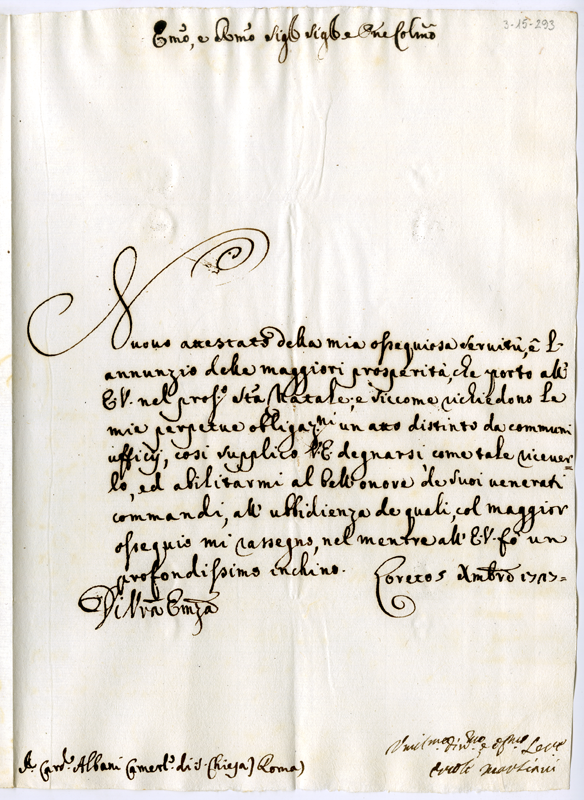 3-15-293
Emo, e Rmo Sigr Sigr e Pne Colmo
Nuovo attestato della mia ossequiosa servitù, è l'
annunzio delle maggiori prosperità, che porto all'
E.V. nel pross.o S.to Natale, e siccome richiedono le
mie perpetue obligaz.ni un atto distinto da communi
ufficij, così supplico V.E. degnarsi come tale ricever=
lo, ed abilitarmi al bell'onore de suoi venerati
commandi, all'ubbidienza de quali, col maggior
ossequio mi rassegno, nel mentre all'E.V. fo un
profondissimo inchino. Loreto 5 Xmbre 1717=
Di Vra Emza
Sr. Card.l Albani Camerl.o di S. Chiesa) Roma)
Umil.mo Div.mo e